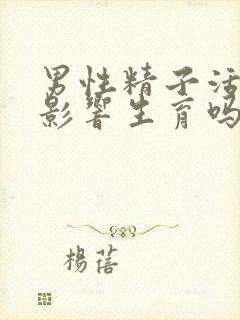 男性精子活
影響生育吗
楊蓓